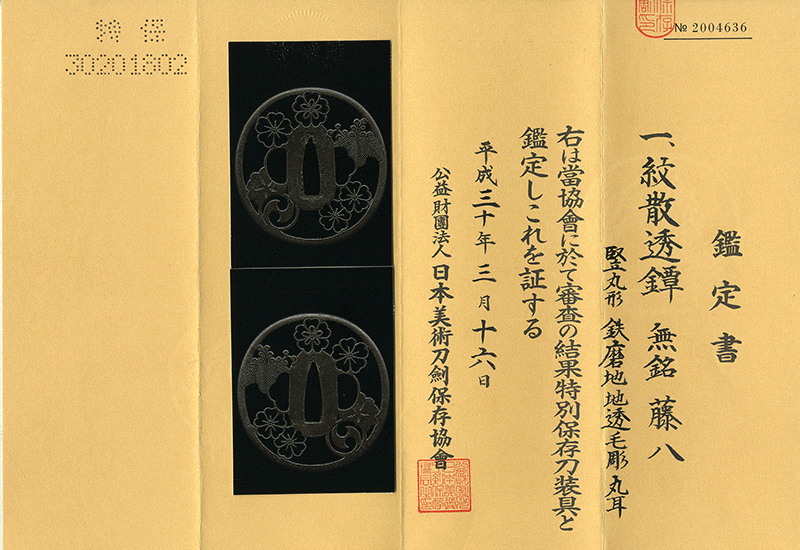 № 2004636
鑑定書
一、紋散透鐔 無銘 藤八
竪丸形 鉄磨地地透毛彫 丸耳
右は當協會に於て審査の結果特別保存刀装具と
鑑定しこれを証する
平成三十年三月十六日
公益財團法人 日本美術刀劍保存協會
特保
30201802